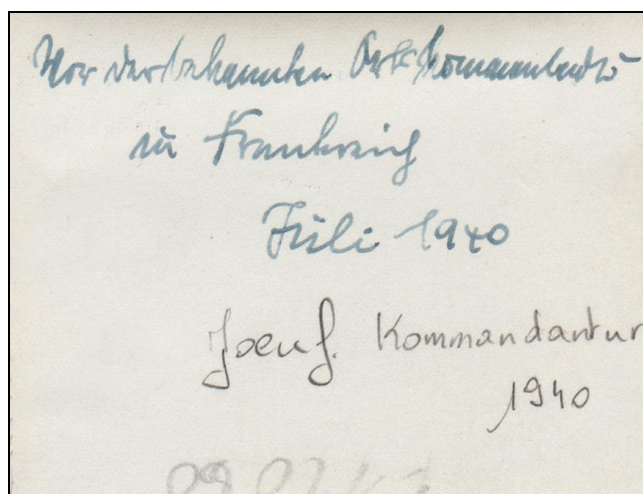 Vor der bekannten Ortskommandtr
in Frankreich
Juli 1940
Joeuf. Kommandantur
1940